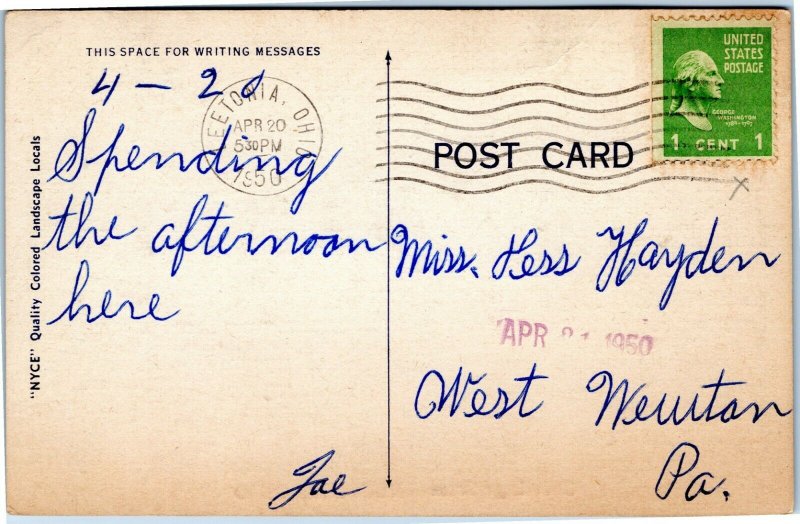 THIS SPACE FOR WRITING MESSAGES
4 - 20
LEETONIA, OHIO
APR 20
5 30 PM
1950
Spending
the afternoon
here
Joe
"NYCE" Quality Colored Landscape Locals
UNITED
STATES
POSTAGE
GEORGE
WASHINGTON
1 CENT 1
POST CARD
Miss. Hess Hayden
APR 21 1950
West Newton
Pa.